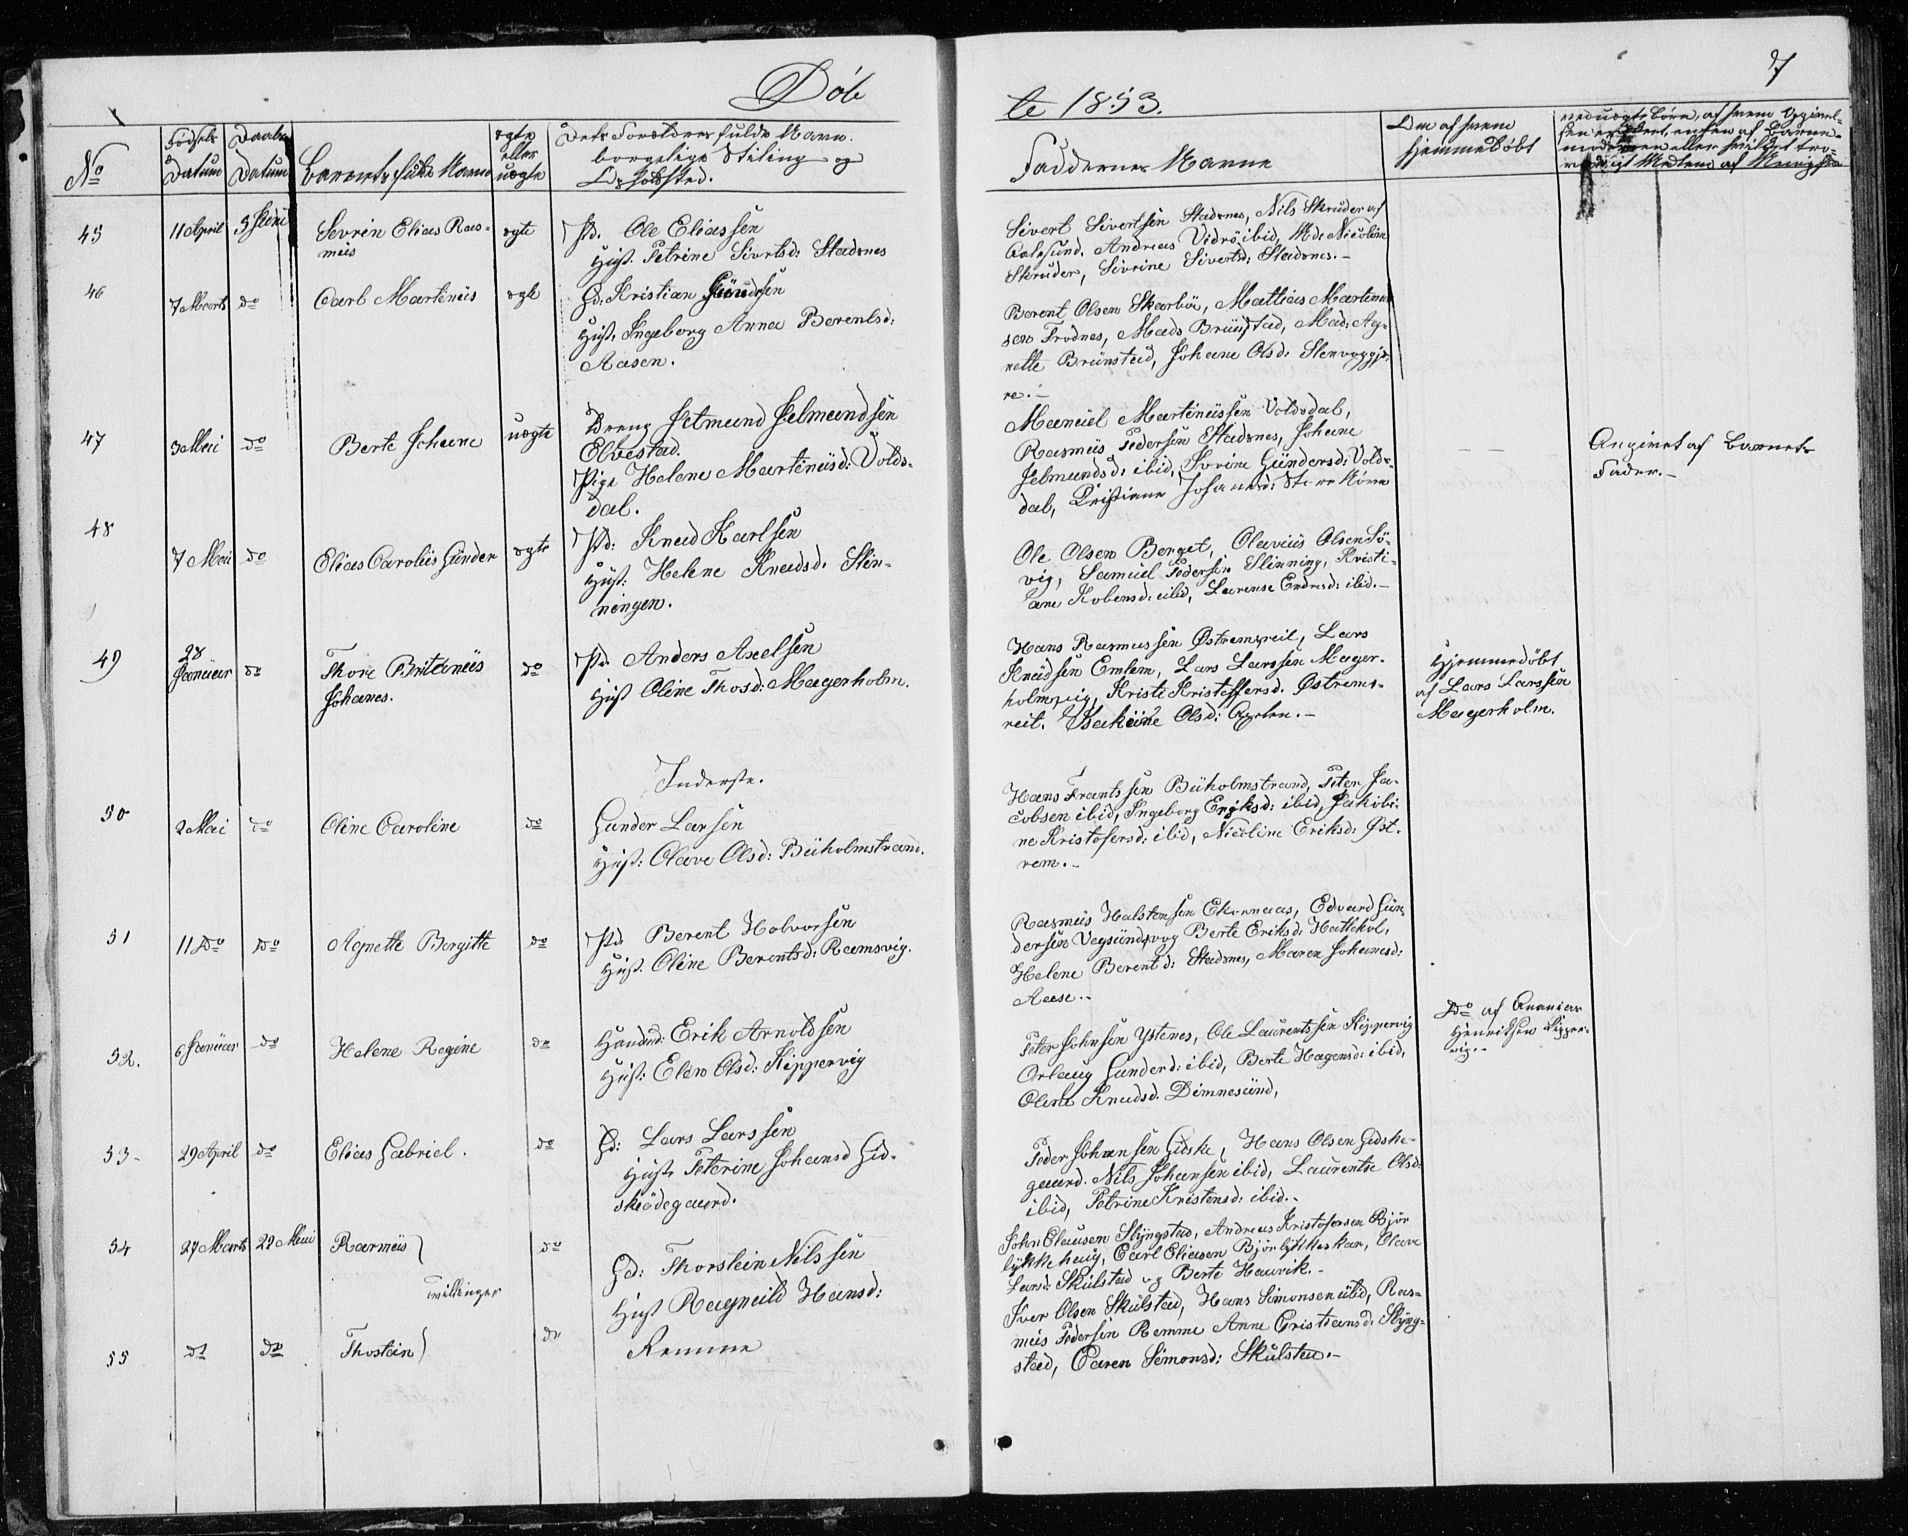 Døb
te 1853.
7
No
Fødsels Datum
Daabs Datum
Barnets fulde Navn
ægte eller uægte
Dets Forældres fulde Navn.
borgelige Stiling og
Opholdsted.
Faddernes Navne
Om af hvem
hjemmedøbt
45
11 April
5 Juni
Sevrin Elias Ras-
mus
ægte
Pd. Ole Eliassen
Hust. Petrine Sivertsd: Stadsnes
Sivert Sivertsen Stadsnes, Nils Skruder af
Aalesund. Andreas Vidrö ibid, Md: Nicoline
Skruder, Sivrine Sivertsd: Stadsnes.-
46
7 Marts
do
Carl Martinus
ægte
Gd. Kristian
Hust. Ingeborg Anna Berentsd:
Aasen.
Berent Olsen Skarbö, Mattias Martinus
sen Frodnes, Mads Brunstad, Mad: Ag-
nette Brunstad, Johane Olsd: Stenvaggjæ-
re.-
47
3 Mai
do
Berte Johane
uægte
Dreng Jetmund Jelmundsen
Elvestad.
Pige Helene Martinusd: Volds-
dal.
Manuel Martinussen Voldsdal,
Rasmus Pedersen Stadsnes, Johane
Jelmundsd: ibid, Ivrine Gundersd: Volds-
dal, Cristiane Johansd:
- -
Angivet af Barnets
Fader.-
48
7 Mai
do
Elias Carolus Gunder
ægte
Pd: Knud Karlsen
Hust: Helene Knudsd: Slin-
ningen.
Ole Olsen Berget, Olavius Olsen Sö-
vig, Samuel Pedersen Slinning, Kristi-
ane Kobensd: ibid, Larense Endresd: ibid.-
49
28
Januar
do
Thore Britanus
Johanes.
do
Pd. Anders Axelsen
Hust Oline Thosd: Magerholm.
Hans Rasmussen Østremsreit, Lars
Knudsen Emlem, Lars Larssen Mager-
holmsvig, Kristi Kristoffersd. Østrems-
reit. Isakine Olsd: Apelen.-
Hjemmedøbt
af Lars Larssen
Magerholm.
50
2 Mai
do
Oline Caroline
do
Inderste.
Gunder Larsen
Hust: Olave Olsd: Buholmstrand.
Hans Frantssen Buholmstrand, Peter Ja-
cobsen ibid, Ingeborg Eriksd: ibid, Jakobi-
ne Kristofersd: ibid, Nicoline Eriksd: Øst-
rem.-
51
11 Do
Do
Agnette Bergitte
do
Pd Berent Holvorsen
Hust. Oline Berentsd: Ramsvig.
Rasmus Halstensen Ekornaas, Edvard Gun-
dersen Vegsundsvog Berte Eriksd: Hattehol,
Helene Berentd: Stadsnes, Maren Johansd:
Aase.-
52.
6 Januar
do
Helene Regine
do
Huusmd: Erik Arnoldsen
Hust: Elen Olsd: Kippervig
Peter Johnsen Ystenes, Ole Laurentssen Kippervig
Orlaug Gunderd: ibid, Berte Hagensd: ibid,
Olene Knudsd. Dimnesund,
Do af Ananias
Henriksen Kipper-
vig.-
53-
29 April
do
Elias Gabriel.
do
Gd: Lars Larssen
Hust Peterine Johansd Gid-
skødegaard.
Peder Johansen Giske, Hans Olsen Gidske-
gaard. Nils Johansen ibid, Laurentse Olsd:
ibid, Petrine Kristensd: ibid.-
54
27 Marts
29 Mai
Rasmus
Tvillinger
do
Gd: Thorstein Nilssen
Hust Ragneild Hansd:
Remme
John Clausen Slyngstad, Andreas Kristofersen Bjør
lykkehaug, Carl Eliasen Bjørlykkeskar, Olave
Larsd: Skulstad og Berte Hauvik.-
55
do
do
Thostein
do
Iver Olsen Skulstad, Hans Simonsen ibid, Ras-
mus Pedersen Remme Anne Cristiansd: Slyng-
stad, Caren Simonsd: Skulstad.-